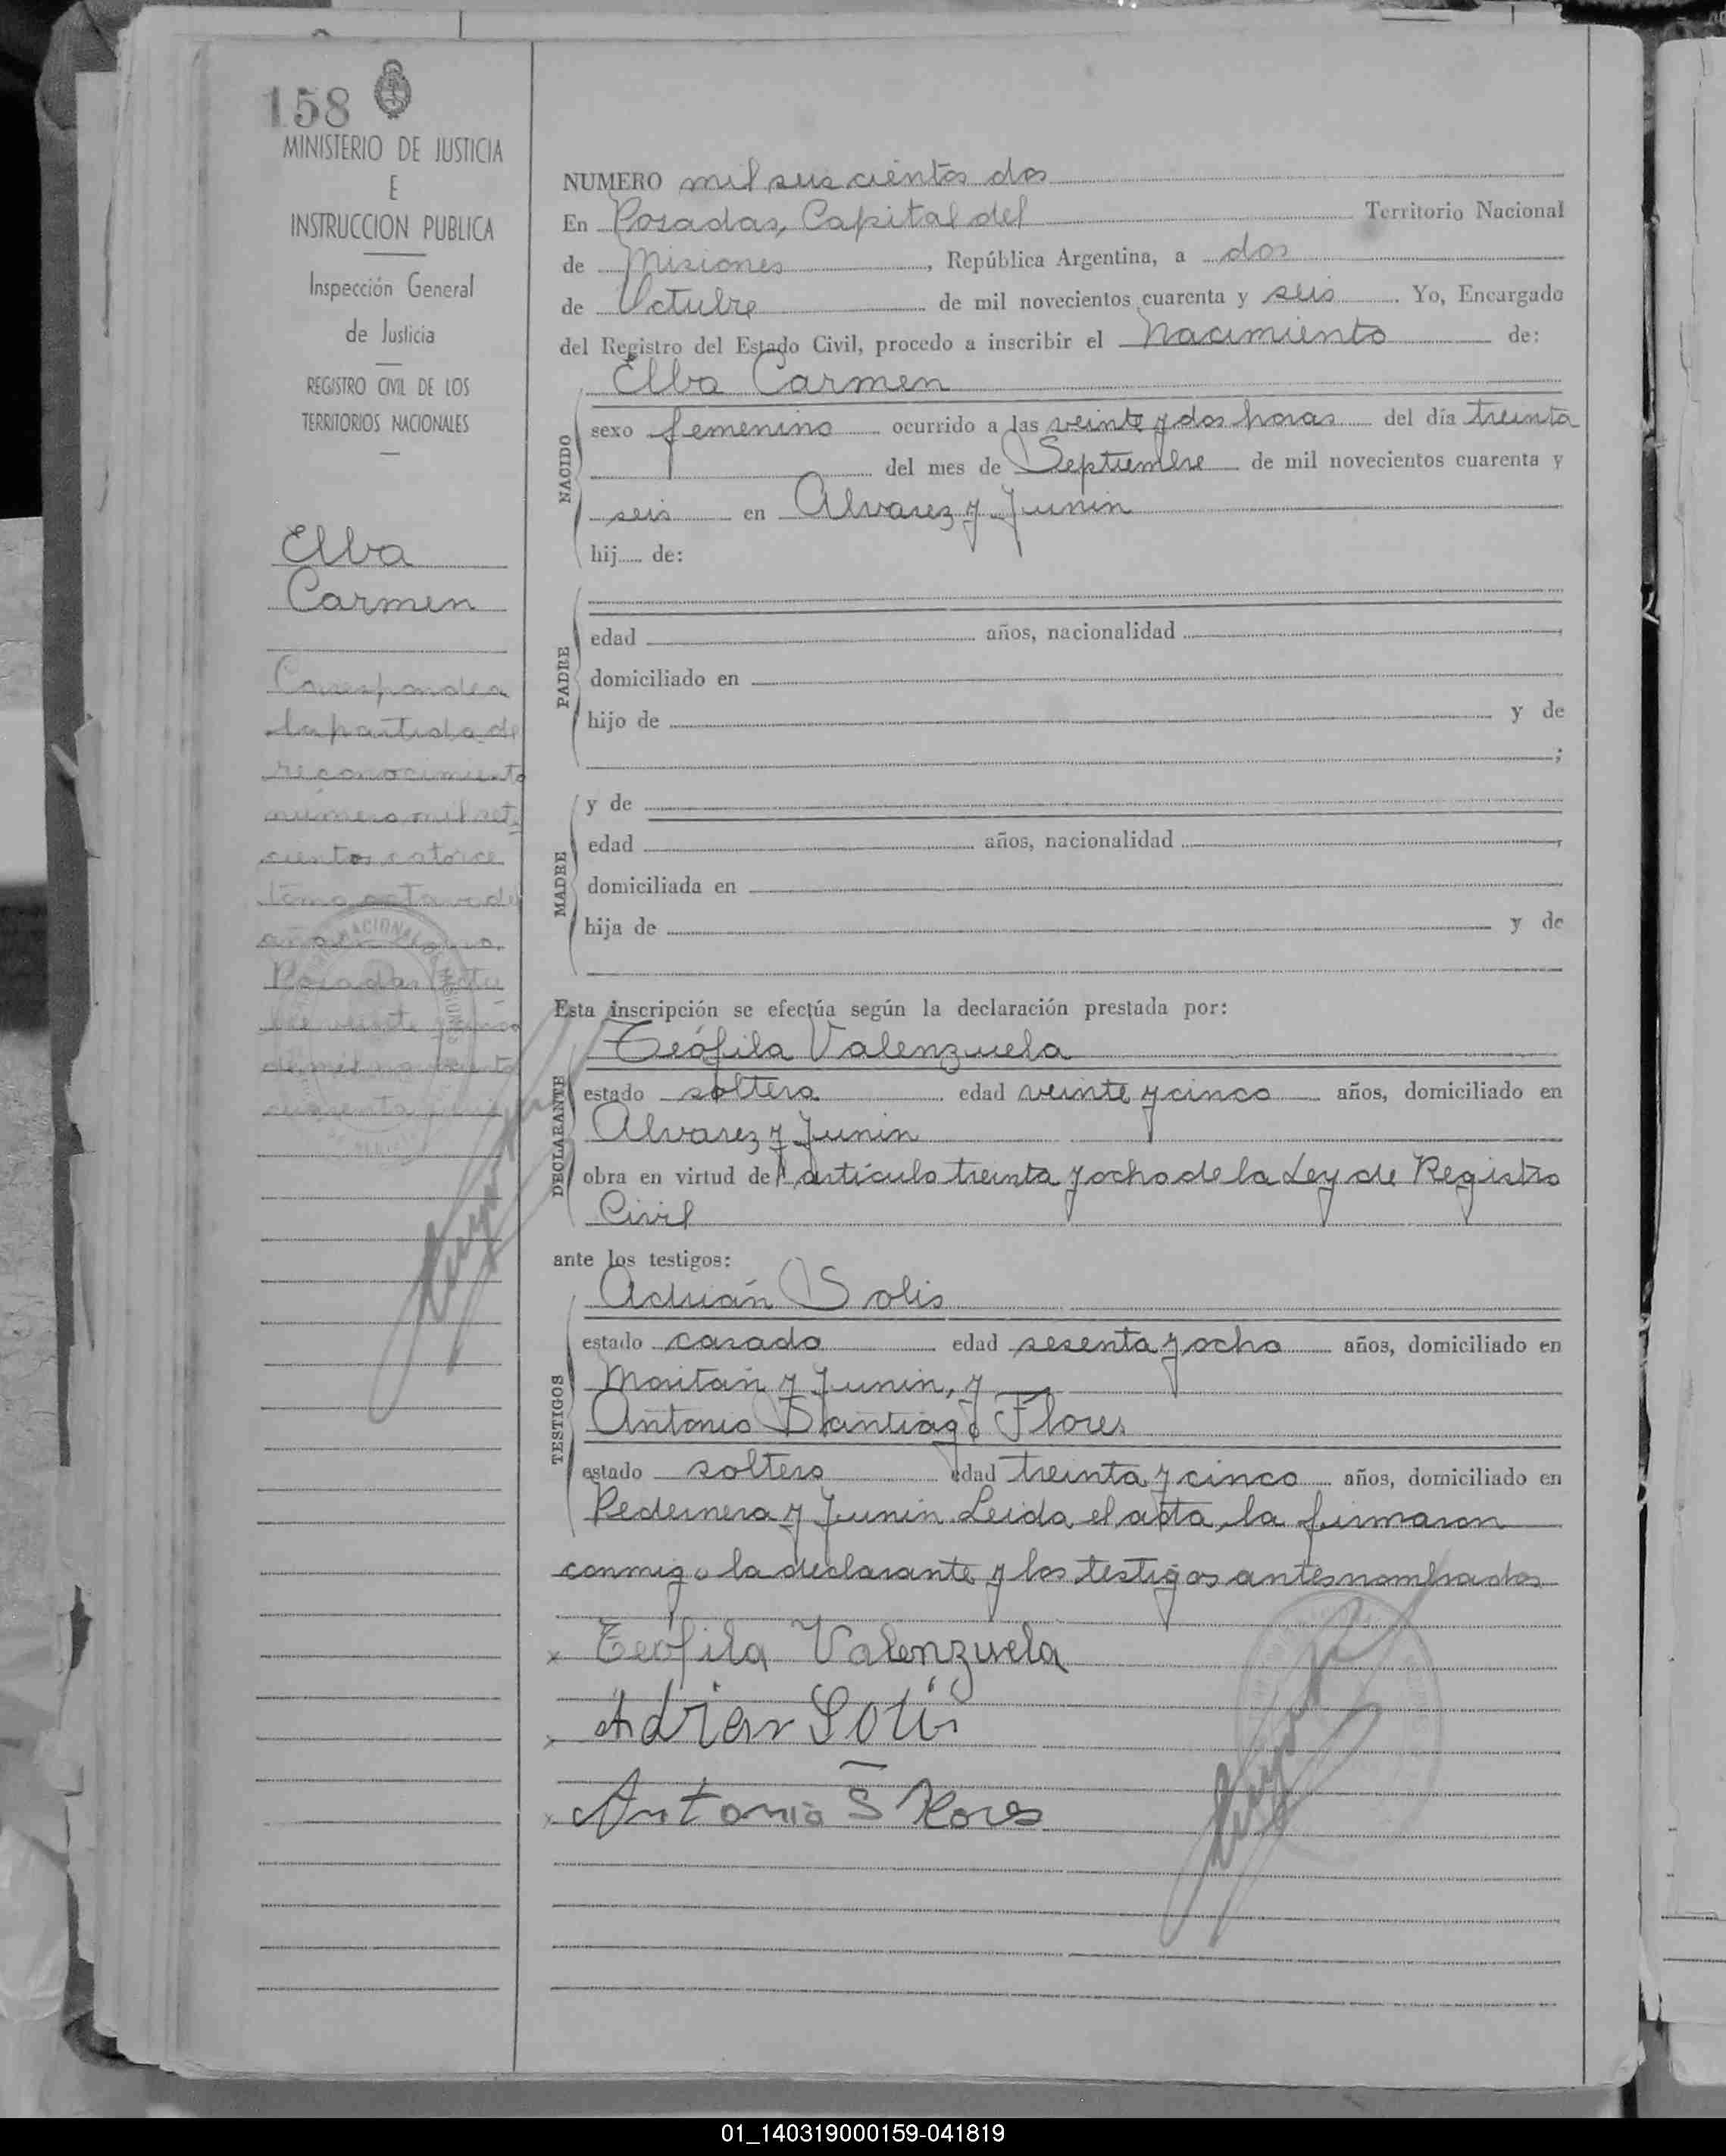 158
MINISTERIO DE JUSTICIA
E
INSTRUCCION PUBLICA
Inspección General
de Justicia
REGISTRO CIVIL DE LOS
TERRITORIOS NACIONALES
Elba
Carmen
Corresponde a
la partida de
reconocimiento
número mil sete
cientos catorce
tomo octavo del
Posadas Octu
bre veinte y cinco
de mil novecientos
cuarenta y seis
NUMERO mil seis cientos dos
En Posadas, Capital del Territorio Nacional
de Misiones, República Argentina, a dos
de Octubre de mil novecientos cuarenta y seis. Yo, Encargado
del Registro del Estado Civil, procedo a inscribir el Nacimiento de:
Elba Carmen
NACIDO
sexo femenino ocurrido a las veinte y dos horas del día treinta
del mes de Septiembre de mil novecientos cuarenta y
seis en Alvarez y Junin
hij de:
PADRE
edad años, nacionalidad
domiciliado en
hijo de y de
;
MADRE
y de
edad años, nacionalidad
domiciliada en
hija de y de
Esta inscripción se efectúa según la declaración prestada por:
DECLARANTE
Teófila Valenzuela
estado soltera edad veinte y cinco años, domiciliado en
Alvarez y Junin
obra en virtud del artículo treinta y ocho de la Ley de Registro
Civil
ante los testigos:
TESTIGOS
Adrián Solis
estado casado edad sesenta y ocho años, domiciliado en
Moritán y Junin, y
Antonio Santiago Flores
estado soltero edad treinta y cinco años, domiciliado en
Pedernera y Junin. Leida el acta, la firmaron
conmigo la declarante y los testigos antes nombrados
x Teofila Valenzuela
x Adrian Solis
x Antonio S Flores
01_140319000159-041819